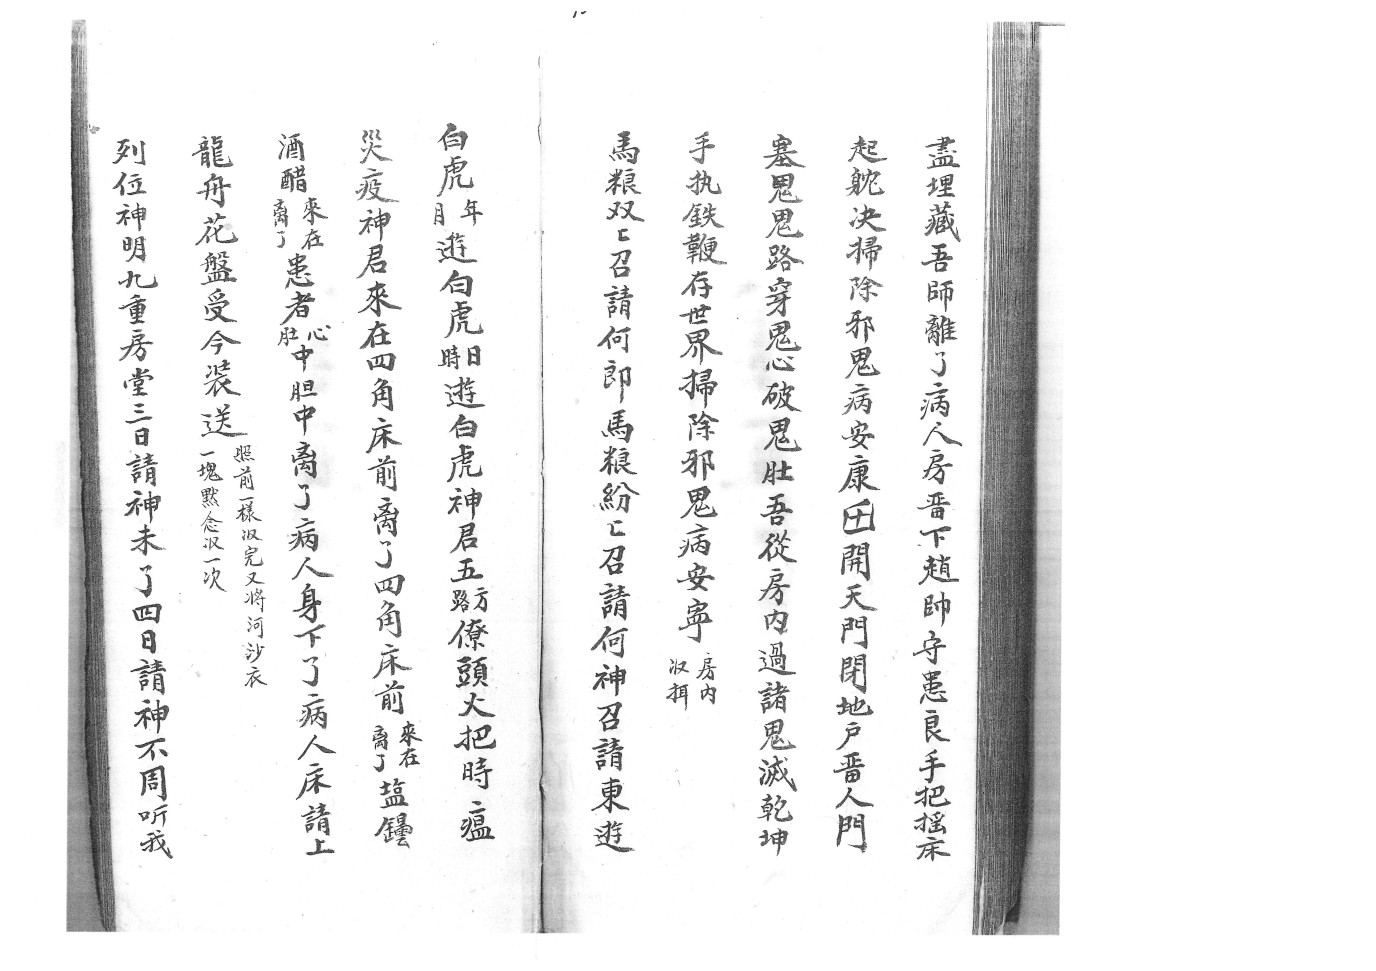 盡埋藏吾師離了病人房畨下趙帥守患良手把摇床
起躭决掃除邪鬼病安康 開天門閉地户畨人門
塞鬼鬼路穿鬼心破鬼肚吾從房内過諸鬼滅乾坤
手执鉄鞭存世界掃除邪鬼病安寧房内
馬粮双匕召請何郎馬粮紛匕召請何神召請東遊
白虎年月遊白虎日時遊白虎神君五方路僚頭火把時瘟
災疫神君來在四角床前离了四角床前來在离了塩鑸
酒醋來在离了患者心肚中胆中离了病人身下了病人床請上
龍舟花盤受今装送照前一樣收完又将河沙衣一塊默念収一次
列位神明九重房堂三日請神未了四日請神不周听我